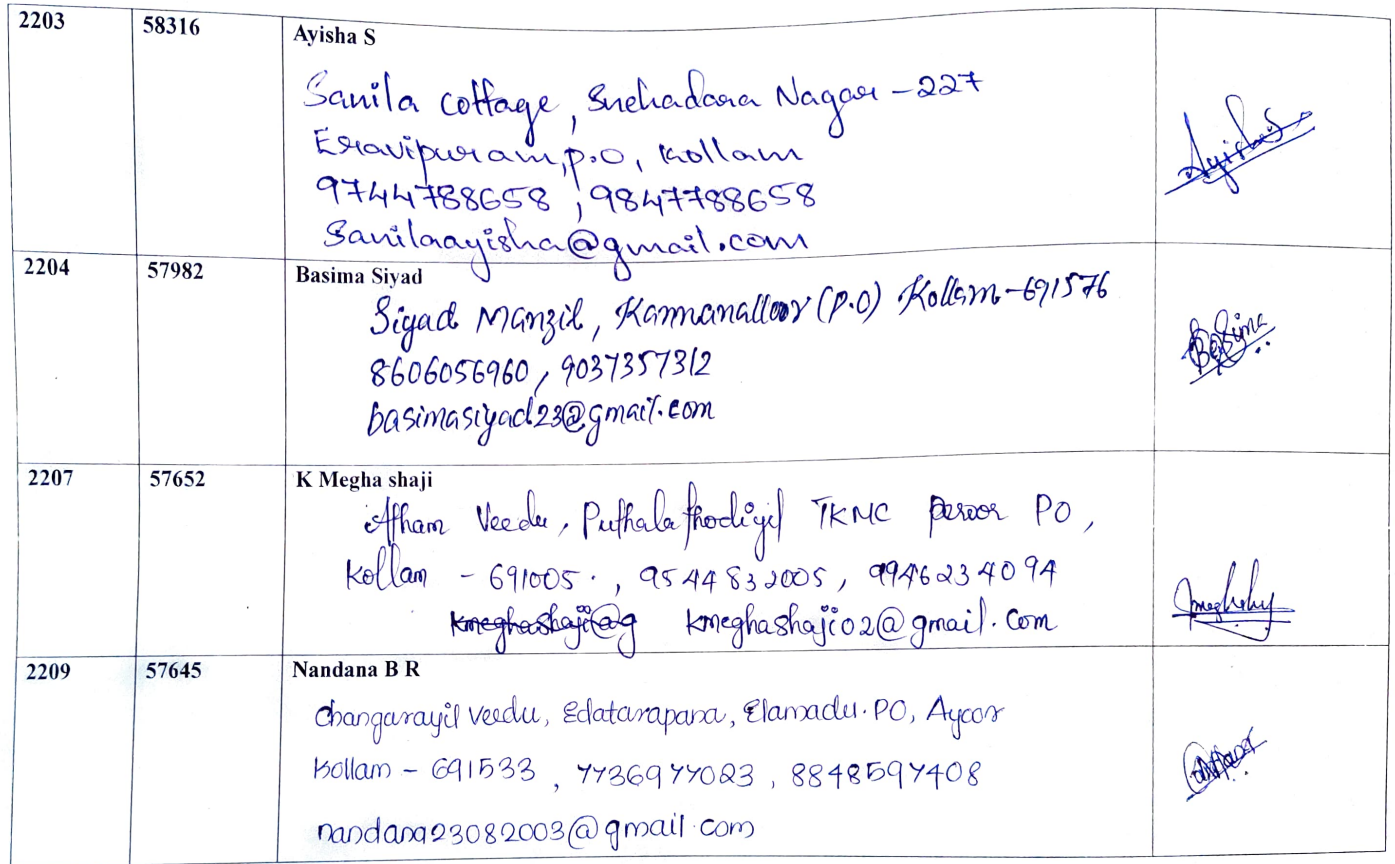 2203 58316 Ayisha S
Sanila cottage, Snehadara Nagar - 227
Eravipuram, p.o, Kollam
9744788658, 9847788658
Sanilaayisha@gmail.com
Ayisha S
2204 57982 Basima Siyad
Siyad Manzil, Kannanalloor (P.O) Kollam - 691576
8606056960, 9037357312
basimasiyad23@gmail.com
Basima
2207 57652 K Megha shaji
Atham Veedu, Puthala thodiyil TKMC Peroor PO,
Kollam - 691005., 9544832005, 9946234094
kmeghashaji@g kmeghashaji02@gmail.com
2209 57645 Nandana B R
Changarayil veedu, Edatarapana, Elamadu. PO, Ayoor
Kollam - 691533, 7736977023, 8848597408
nandana23082003@gmail.com